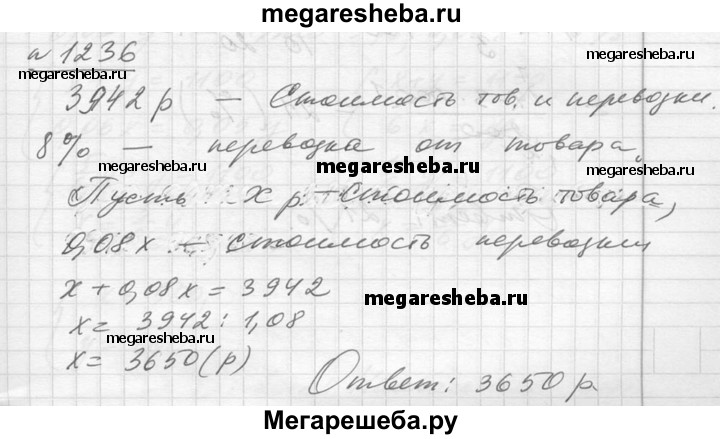 megaresheba.ru
№ 1236
megaresheba.ru
megaresheba.ru
3942 р — Стоимость тов. и перевозки.
8% — перевозка от товара.
megaresheba.ru
Пусть х р – стоимость товара,
0,08х — стоимость перевозки
х + 0,08х = 3942
megaresheba.ru
х = 3942 : 1,08
megaresheba.ru
х = 3650 (р)
Ответ: 3650 р
Мегарешеба.ру